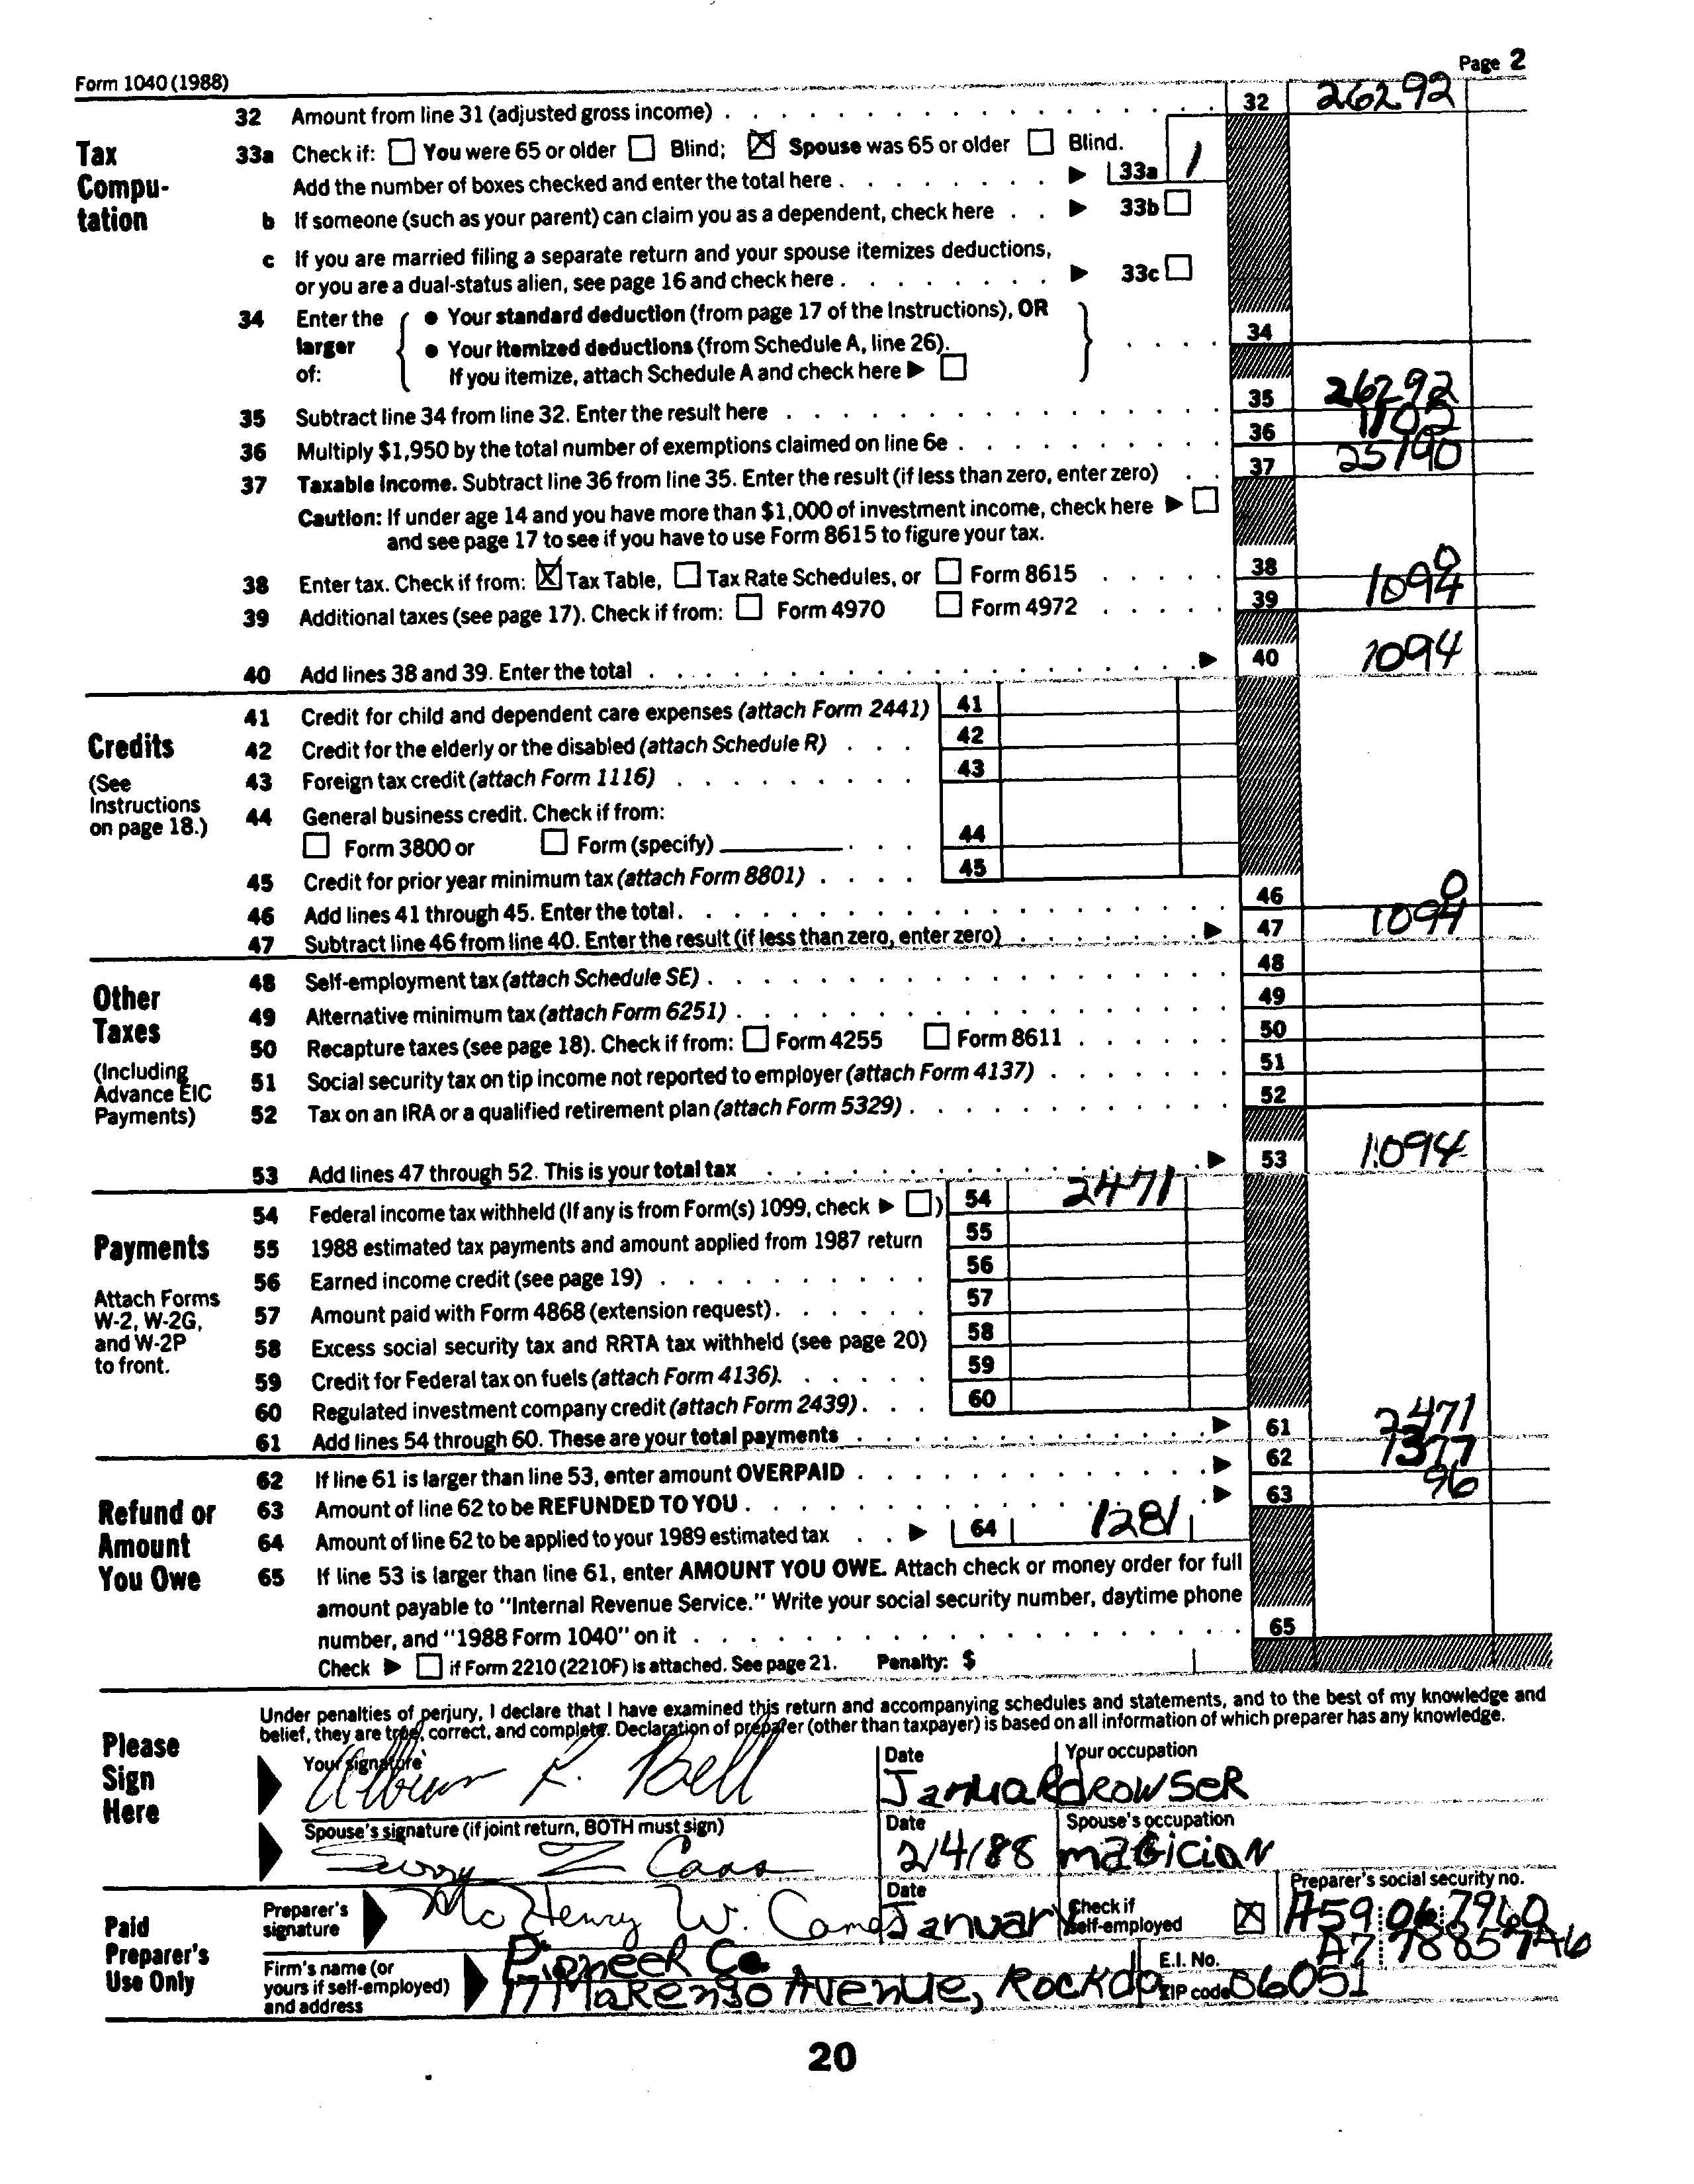 Form 1040 (1988) Page 2
Tax Computation
32 Amount from line 31 (adjusted gross income) 32 26292
33a Check if: ☐ You were 65 or older ☐ Blind; ☒ Spouse was 65 or older ☐ Blind.
Add the number of boxes checked and enter the total here ▶ 33a 1
b If someone (such as your parent) can claim you as a dependent, check here ▶ 33b ☐
c If you are married filing a separate return and your spouse itemizes deductions,
or you are a dual-status alien, see page 16 and check here ▶ 33c ☐
34 Enter the larger of:
● Your standard deduction (from page 17 of the Instructions), OR
● Your itemized deductions (from Schedule A, line 26).
If you itemize, attach Schedule A and check here ▶ ☐
34
35 Subtract line 34 from line 32. Enter the result here 35 26292
36 Multiply $1,950 by the total number of exemptions claimed on line 6e 36 1102
37 Taxable income. Subtract line 36 from line 35. Enter the result (if less than zero, enter zero) 37 25190
Caution: If under age 14 and you have more than $1,000 of investment income, check here ▶ ☐
and see page 17 to see if you have to use Form 8615 to figure your tax.
38 Enter tax. Check if from: ☒ Tax Table, ☐ Tax Rate Schedules, or ☐ Form 8615 38 0
39 Additional taxes (see page 17). Check if from: ☐ Form 4970 ☐ Form 4972 39 1094
40 Add lines 38 and 39. Enter the total ▶ 40 1094
Credits
(See Instructions on page 18.)
41 Credit for child and dependent care expenses (attach Form 2441) 41
42 Credit for the elderly or the disabled (attach Schedule R) 42
43 Foreign tax credit (attach Form 1116) 43
44 General business credit. Check if from:
☐ Form 3800 or ☐ Form (specify) 44
45 Credit for prior year minimum tax (attach Form 8801) 45
46 Add lines 41 through 45. Enter the total. 46 0
47 Subtract line 46 from line 40. Enter the result (if less than zero, enter zero) ▶ 47 1094
Other Taxes
(Including Advance EIC Payments)
48 Self-employment tax (attach Schedule SE) 48
49 Alternative minimum tax (attach Form 6251) 49
50 Recapture taxes (see page 18). Check if from: ☐ Form 4255 ☐ Form 8611 50
51 Social security tax on tip income not reported to employer (attach Form 4137) 51
52 Tax on an IRA or a qualified retirement plan (attach Form 5329) 52
53 Add lines 47 through 52. This is your total tax ▶ 53 1094
Payments
Attach Forms W-2, W-2G, and W-2P to front.
54 Federal income tax withheld (If any is from Form(s) 1099, check ▶ ☐) 54 2471
55 1988 estimated tax payments and amount applied from 1987 return 55
56 Earned income credit (see page 19) 56
57 Amount paid with Form 4868 (extension request) 57
58 Excess social security tax and RRTA tax withheld (see page 20) 58
59 Credit for Federal tax on fuels (attach Form 4136). 59
60 Regulated investment company credit (attach Form 2439) 60
61 Add lines 54 through 60. These are your total payments ▶ 61 2471
Refund or Amount You Owe
62 If line 61 is larger than line 53, enter amount OVERPAID ▶ 62 1377
63 Amount of line 62 to be REFUNDED TO YOU ▶ 63 96
64 Amount of line 62 to be applied to your 1989 estimated tax ▶ 64 1281
65 If line 53 is larger than line 61, enter AMOUNT YOU OWE. Attach check or money order for full
amount payable to "Internal Revenue Service." Write your social security number, daytime phone
number, and "1988 Form 1040" on it 65
Check ▶ ☐ if Form 2210 (2210F) is attached. See page 21. Penalty: $
Please Sign Here
Under penalties of perjury, I declare that I have examined this return and accompanying schedules and statements, and to the best of my knowledge and
belief, they are true, correct, and complete. Declaration of preparer (other than taxpayer) is based on all information of which preparer has any knowledge.
Your signature Date Your occupation
R. Bell Januar DROWSER
Spouse's signature (if joint return, BOTH must sign) Date Spouse's occupation
Z 2/4/88 MAGICIAN
Paid Preparer's Use Only
Preparer's signature Date Check if self-employed ☒ Preparer's social security no.
McHenry W. Januar A59 06 7960
Firm's name (or yours if self-employed) and address
Pioneer Co. E.I. No. A7 78857A6
17 Makenso Avenue, Rockda ZIP code 06051
20